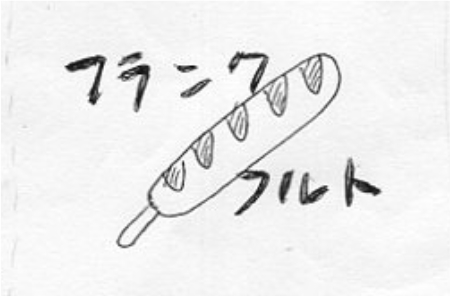 フランク
フルト